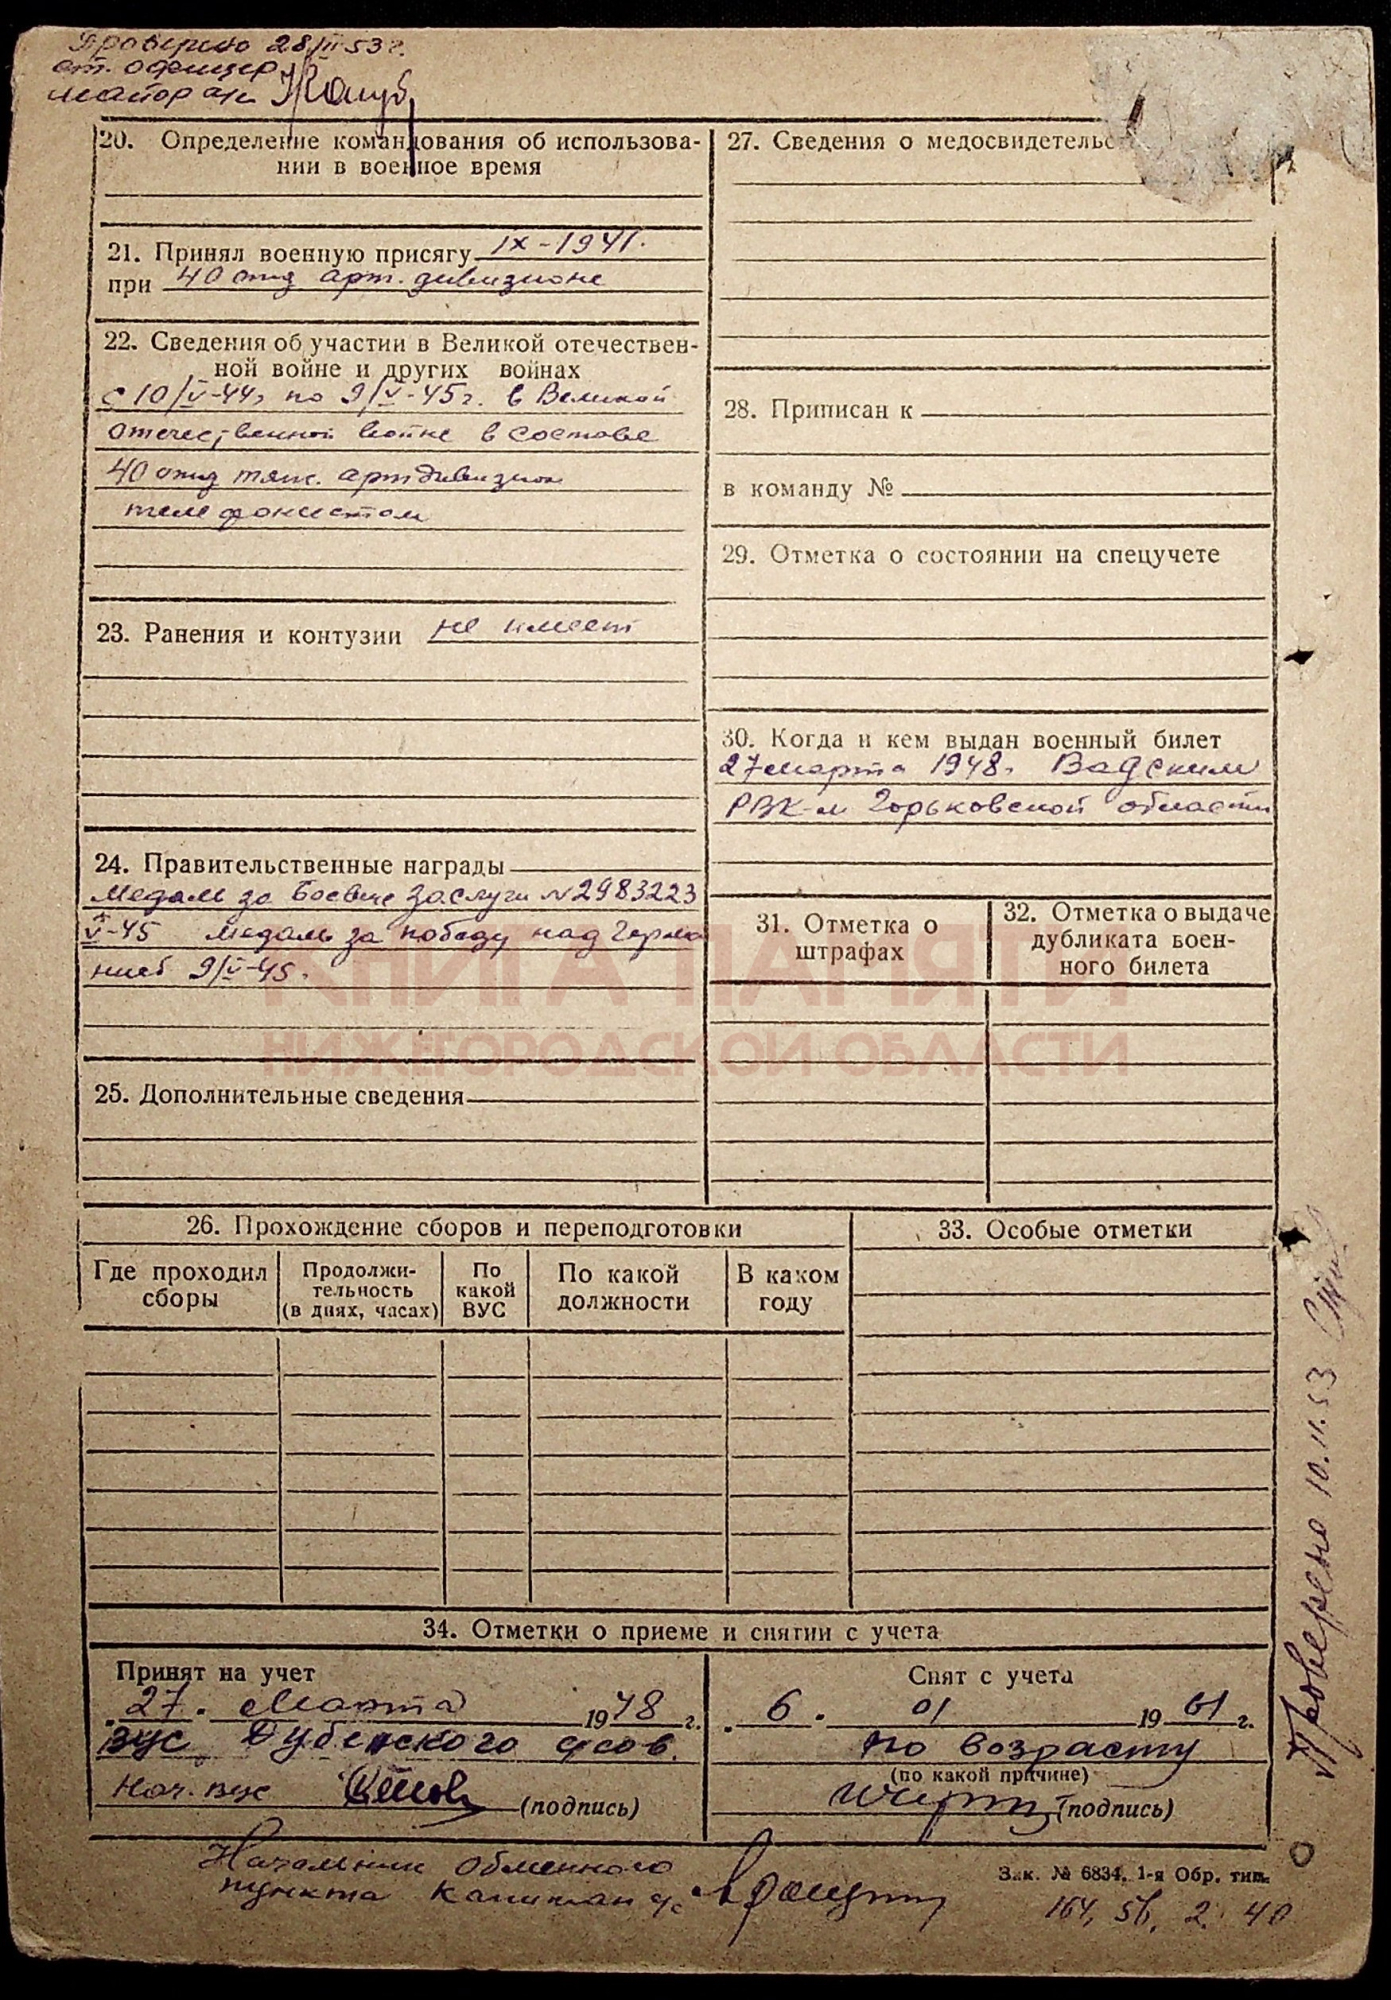 Проверено 28/III 53 г.
ст. офицер
майор а/с
20. Определение командования об использова-
нии в военное время
21. Принял военную присягу IX-1941.
при 40 отд арт. дивизионе
22. Сведения об участии в Великой отечествен-
ной войне и других войнах
с 10/V-44г по 9/V-45г. в Великой
отечественной войне в составе
40 отд тяж. артдивизион
телефонистом
23. Ранения и контузии не имеет
24. Правительственные награды
Медаль за Боевые заслуги №2983223
V-45 Медаль за победу над Герма
нией 9/V-45г.
25. Дополнительные сведения
27. Сведения о медосвидетельс
28. Приписан к
в команду №
29. Отметка о состоянии на спецучете
30. Когда и кем выдан военный билет
27 марта 1948г. Вадским
РВК-м Горьковской области
31. Отметка о
штрафах
32. Отметка о выдаче
дубликата воен-
ного билета
26. Прохождение сборов и переподготовки
Где проходил
сборы
Продолжи-
тельность
(в днях, часах)
По
какой
ВУС
По какой
должности
В каком
году
33. Особые отметки
34. Отметки о приеме и снятии с учета
Принят на учет
27. Марта 1948 г.
ВУС Дубенского
Нач. ВУС (подпись)
Снят с учета
6. 01 1961 г.
по возрасту
(по какой причине)
(подпись)
Начальник обменного
пункта капитан а/с
Зак. № 6834. 1-я Обр. тип.
164, 56, 2. 40
Проверено 10.11.53
КНИГА ПАМЯТИ
НИЖЕГОРОДСКОЙ ОБЛАСТИ